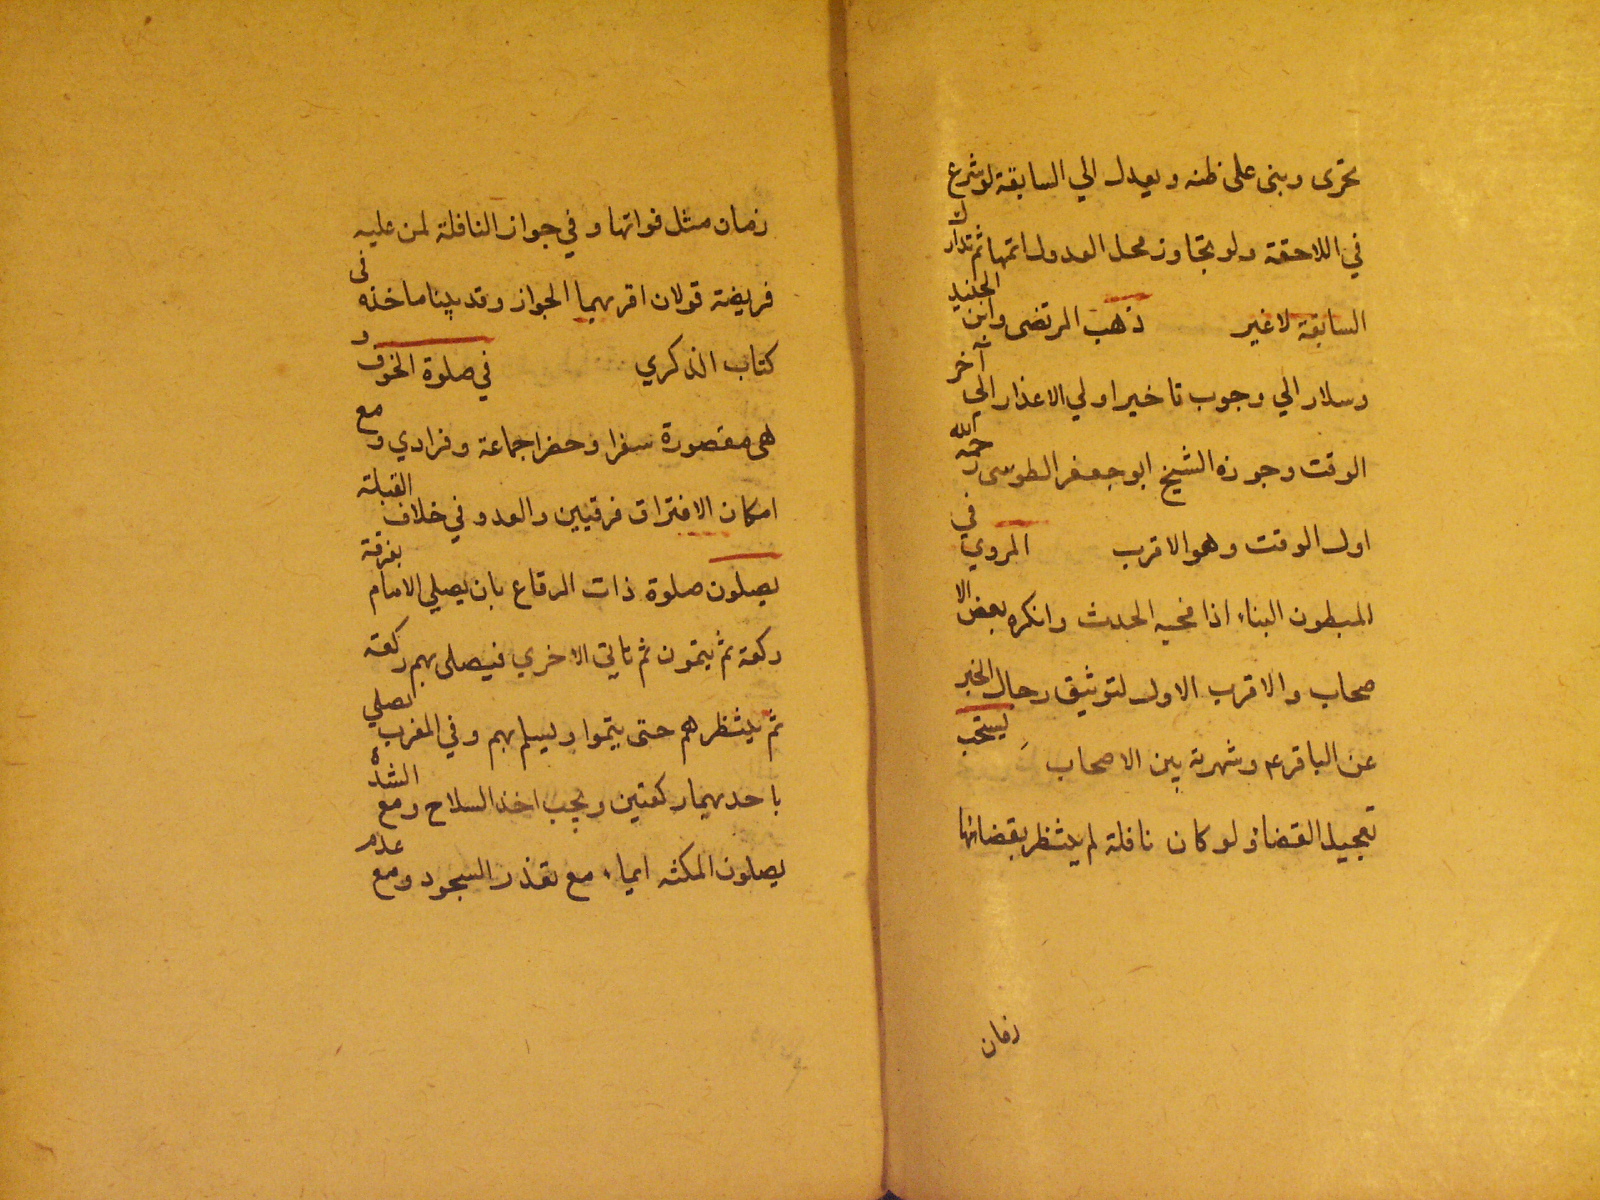 تحرى ويبنى على ظنه ويعدل الي السابقة لو شرع
في اللاحقة ولو تجاوز محل العدول اتمها ثم تدارك
السابقة لاغير ذهب المرتضى وابن الجنيد
وسلار الي وجوب تاخير اولي الاعذار الي آخر
الوقت وجوزه الشيخ ابو جعفر الطوسى رحمه الله
اول الوقت وهو الاقرب المروي في
المبطون البناء اذا فجيه الحدث وانكره بعض الا
صحاب والاقرب الاول لتوثيق رجال الخبر
عن الباقر ع وشهرته بين الاصحاب يستحب
تعجيل القضاء ولو كان نافلة لم ينتظر بقضائها
زمان
زمان مثل فواتها وفي جواز النافلة لمن عليه
فريضة قولان اقربهما الجواز وقد بينا ماخذه في
كتاب الذكري في صلوة الخوف و
هى مقصورة سفرا وحضرا جماعة وفرادي و مع
امكان الافتراق فرقيين والعدو في خلاف القبلة
يصلون صلوة ذات الرقاع بان يصلي الامام بفرقة
ركعة ثم يتمون ثم تاتي الاخري فيصلى بهم ركعة
ثم ينتظرهم حتى يتموا ويسلم بهم وفي المغرب يصلي
باحديهما ركعتين ويجب اخذ السلاح ومع الشدة
يصلون المكتبه ايماء مع تعذر السجود ومع عدم